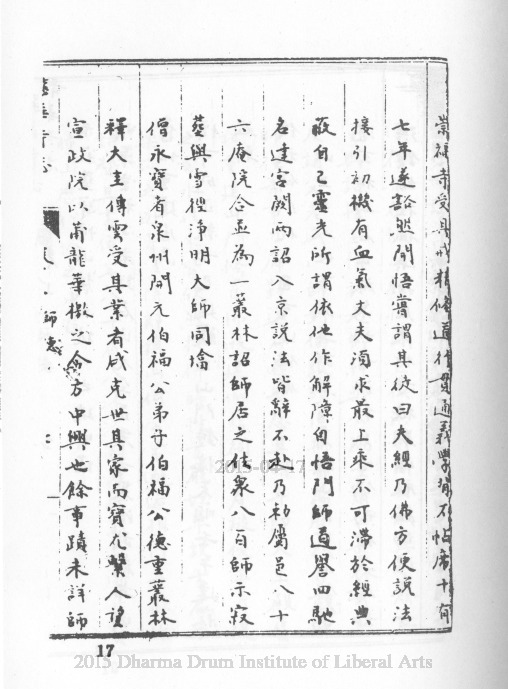 崇福寺受具戒精修道行貫通義學脅不帖席十有
七年遂豁然開悟嘗謂其徒曰夫經乃佛方便說法
接引初機有血氣丈夫須求最上乘不可滯於經典
蔽自己靈光所謂依他作解障自悟門師道譽四馳
名達宮闕兩詔入京說法皆辭不赴乃勑屬邑八十
六庵院合並為一叢林詔師居之住衆八百師示寂
葬與雪徑淨明大師同墖
僧永寶者泉州開元伯福公弟子伯福公德重叢林
禪大圭傳雲受其業者咸克世其家而寶尤繫人望
宣政院以莆龍華檄之令方中興也餘事蹟未詳師
師志
17
2015-04-17
2015 Dharma Drum Institute of Liberal Arts